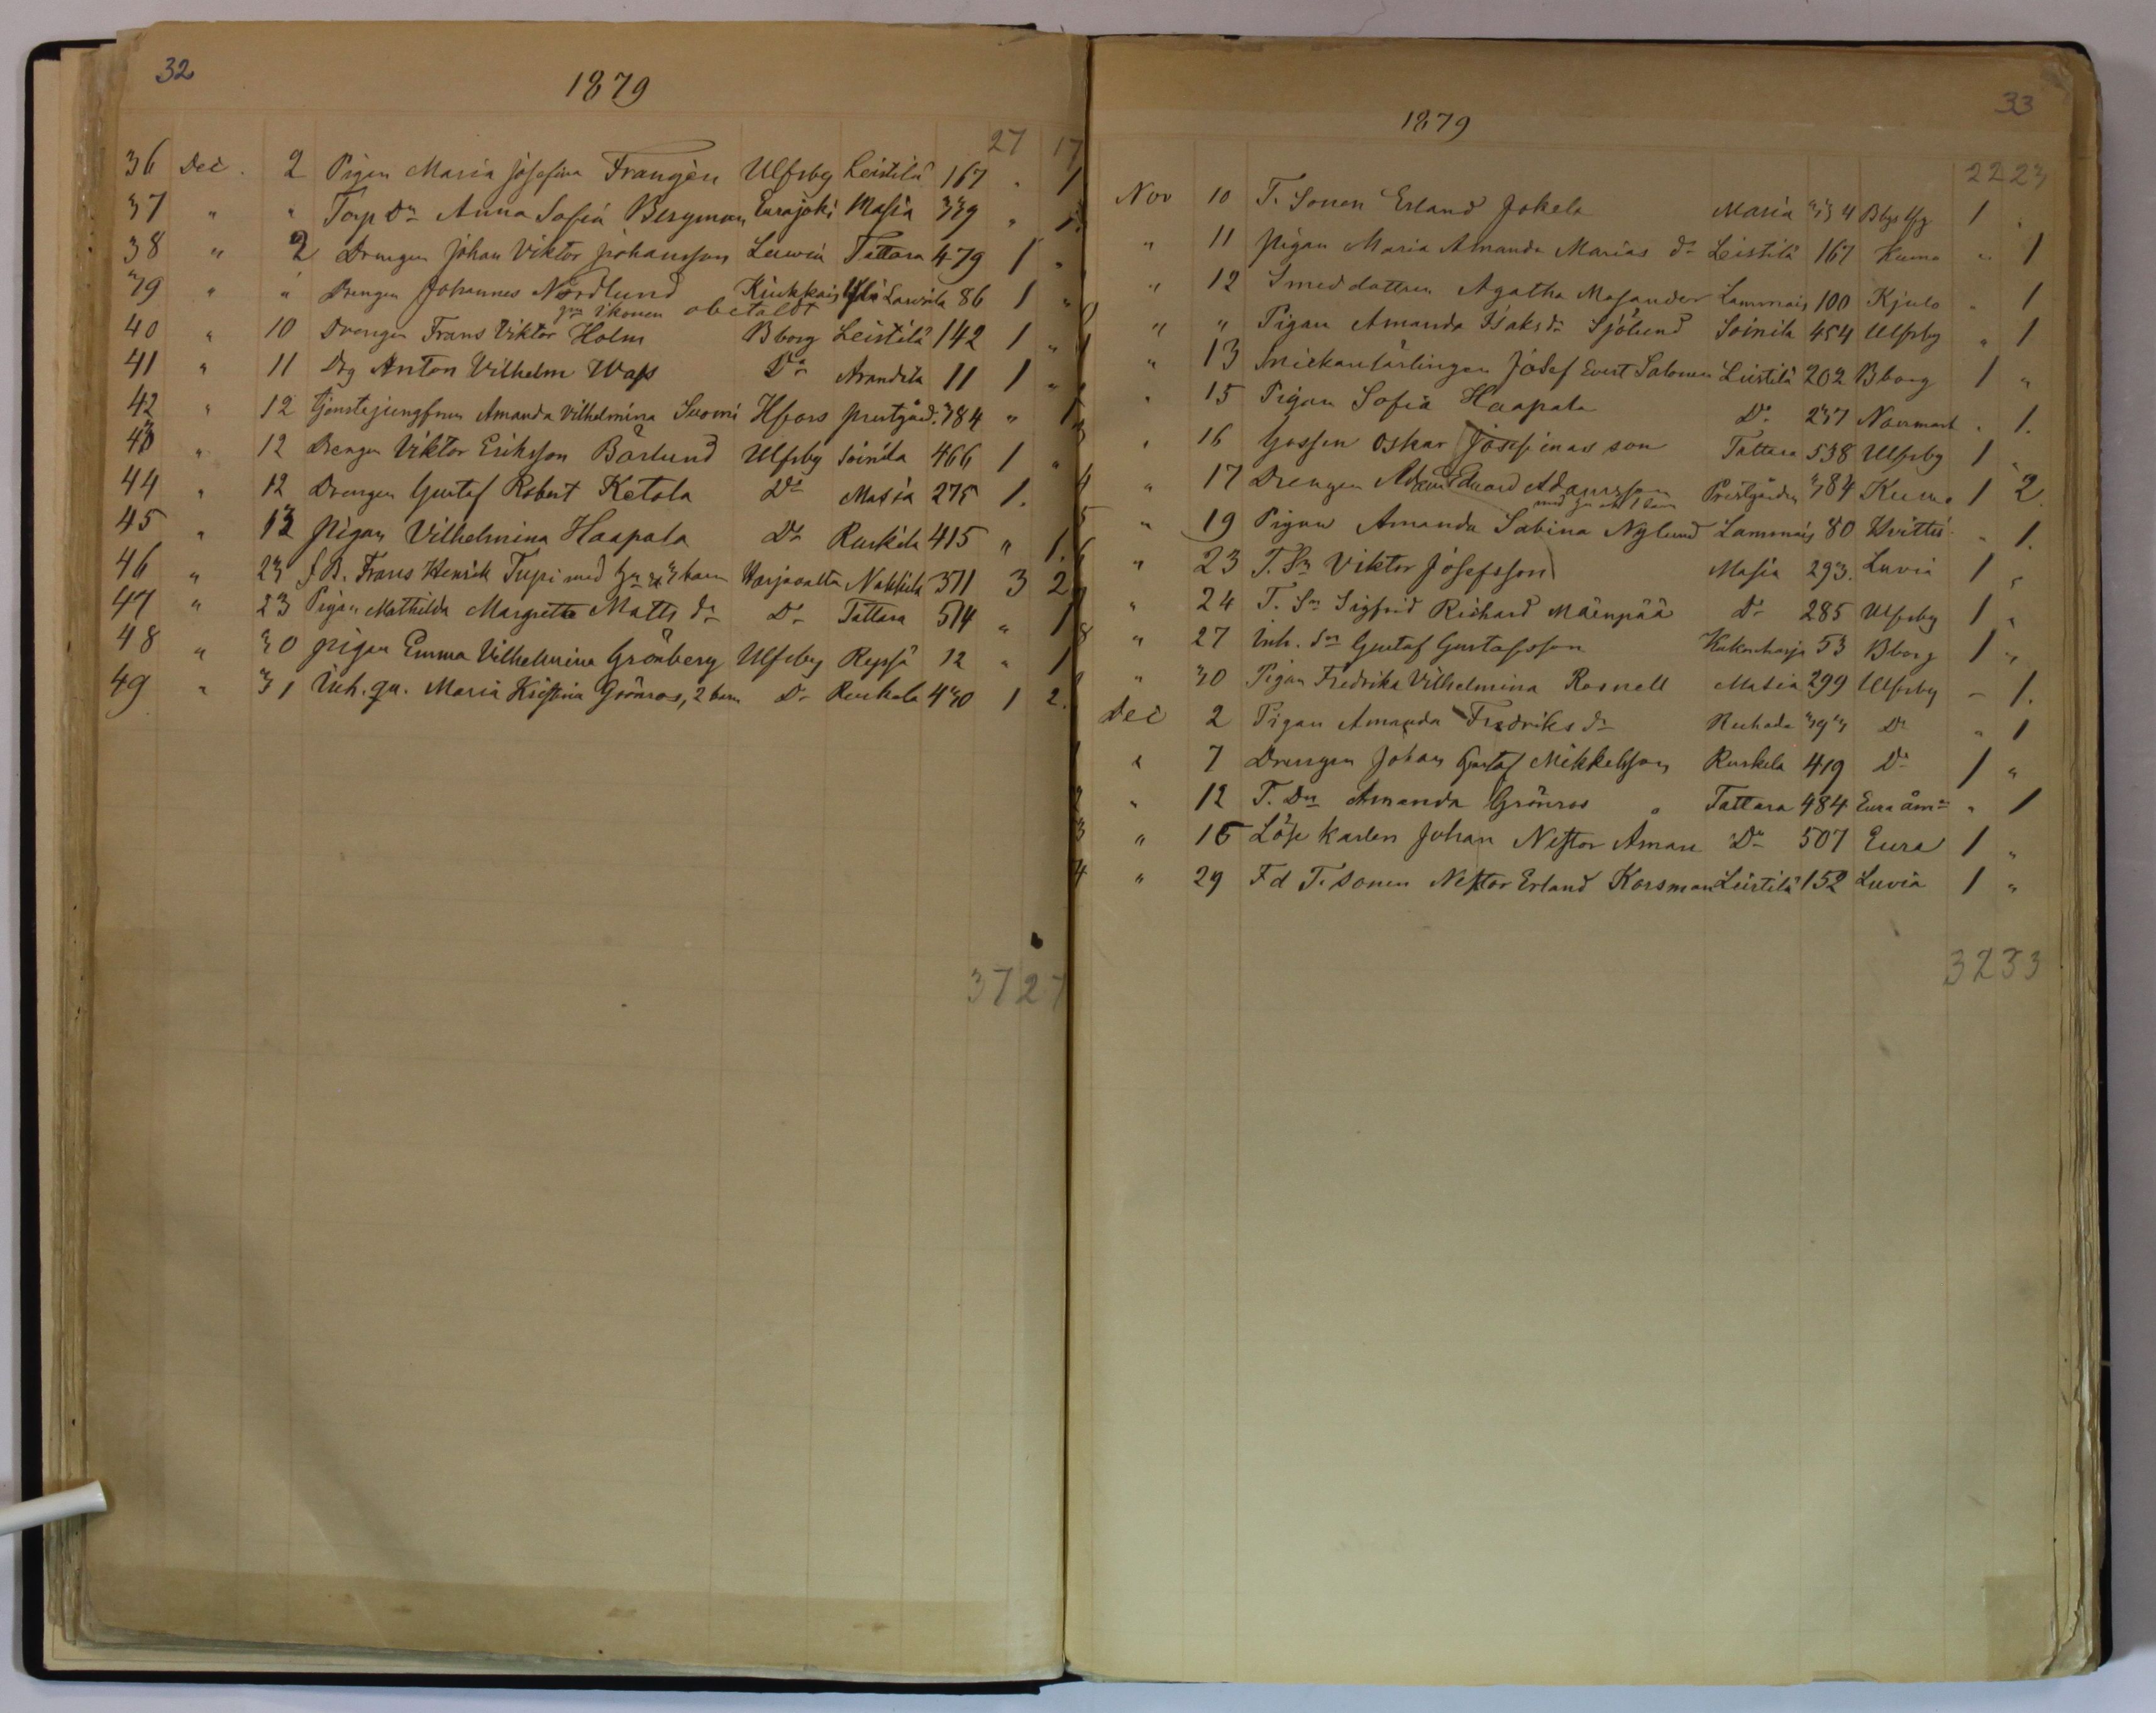 32
1879
27 17
36 Dec. 2 Pigan Maria Josefina Frangèn Ulfsby Leistilä 167 " 1
37 " " Torp Dr Anna Sofia Bergman Eurajoki Masia 339 " 1.
38 " 2 Drengen Johan Viktor Johansson Luvia Tattara 479 1 "
39 " " Drengen Johannes Nordlund Kiukkais Lawila 86 1 "
obetaldt
40 " 10 Drengen Frans Viktor Holm Bborg Leistilä 142 1 "
41 " 11 Drg Anton Vilhelm Wass Do Arandila 11 1 "
42 " 12 tjenstejungfrun Amanda Vilhelmina Suomi Hfors prestgård. 384 " 1
43 " 12 Drengen Viktor Eriksson Bärlund Ulfsby Soinila 466 1 "
44 " 12 Drengen Gustaf Robert Ketola Do Masia 275 1.
45 " 13 pigan Vilhelmina Haapala Do Ruskila 415 " 1.
46 " 23 J. B. Frans Henrik Tupi med hu 3 barn Harjavalta Nakkila 371 3 2
47 " 23 Pigan Mathilda Margretta Matts dr Do Tattara 514 " 1
48 " 30 pigan Emma Vilhelmina Grönberg Ulfsby Repsä 12 " 1
49 " 31 Inh. qu. Maria Kristina Grönros, 2 barn Do Ruhala 430 1 2.
37 27
33
1879
22 23
Nov 10 T. Sonen Erland Jokela Masia 334 1 "
" 11 pigan Maria Amanda Marias dr Leistilä 167 Kumo " 1
" 12 Smeddottren Agatha Masander Lammais 100 Kjulo " 1
" " Pigan Amanda Isaks dr Sjölund Soinila 454 Ulfsby " 1
" 13 Snickarlärlingen Josef Evert Salonen Leistilä 202 Bborg 1 "
" 15 Pigan Sofia Haapala Do 237 Norrmark " 1.
" 16 Gossen Oskar Josefinas son Tattara 538 Ulfsby 1 "
" 17 Drengen Adam Eduard Adamsson Prestgården 384 Kumo 1 2
" 19 Pigan Amanda Sabina Nylund Lammais 80 Hvittis " 1.
" 23 T. Sn Viktor Josefsson Masia 293. Luvia 1 "
" 24 T. Sn Sigfrid Richard Mäenpää Do 285 Ulfsby 1 "
" 27 Inh. Sn Gustaf Gustafsson Kukonharja 53 Bborg 1 "
" 30 Pigan Fredrika Vilhelmina Rosnell Masia 299 Ulfsby – 1.
Dec 2 Pigan Amanda Fredriks dr Ruhada 393 Do " 1
" 7 Drengen Johan Gustaf Mikkelsson Ruskela 419 Do 1 "
" 12 T. Dr Amanda Grönros Tattara 484 Eura åm " 1
" 15 Löse karlen Johan Nestor Åman Do 507 Eura 1 "
" 29 Fd T. sonen Nestor Erland Korsman Leistilä 152 Luvia 1 "
32 33